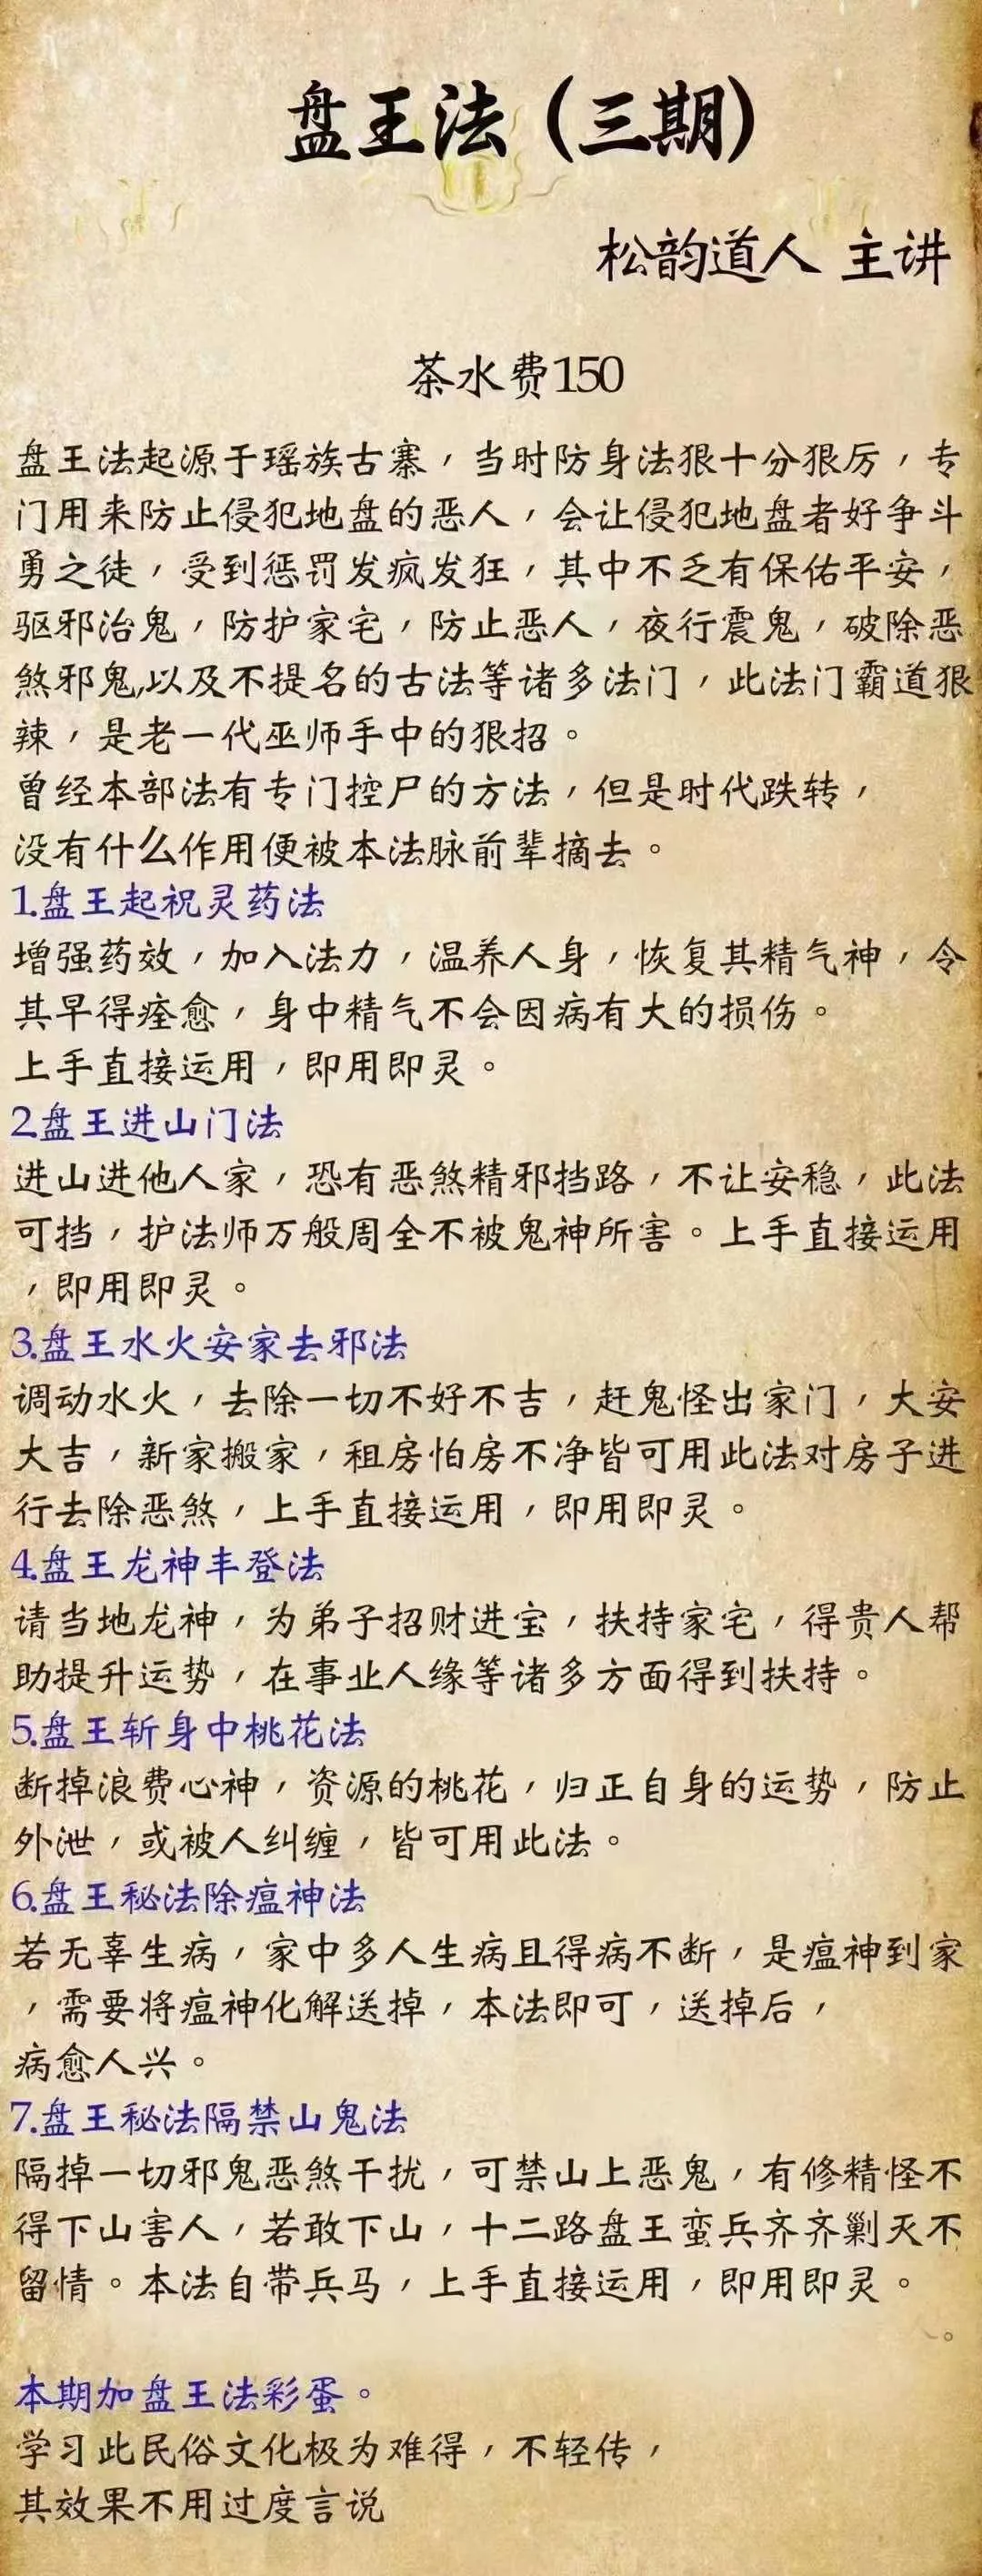 盘王法（三期）
松韵道人 主讲
茶水费150
盘王法起源于瑶族古寨，当时防身法狠十分狠厉，专
门用来防止侵犯地盘的恶人，会让侵犯地盘者好争斗
勇之徒，受到惩罚发疯发狂，其中不乏有保佑平安，
驱邪治鬼，防护家宅，防止恶人，夜行震鬼，破除恶
煞邪鬼,以及不提名的古法等诸多法门，此法门霸道狠
辣，是老一代巫师手中的狠招。
曾经本部法有专门控尸的方法，但是时代跌转，
没有什么作用便被本法脉前辈摘去。
1.盘王起祝灵药法
增强药效，加入法力，温养人身，恢复其精气神，令
其早得痊愈，身中精气不会因病有大的损伤。
上手直接运用，即用即灵。
2.盘王进山门法
进山进他人家，恐有恶煞精邪挡路，不让安稳，此法
可挡，护法师万般周全不被鬼神所害。上手直接运用
，即用即灵。
3.盘王水火安家去邪法
调动水火，去除一切不好不吉，赶鬼怪出家门，大安
大吉，新家搬家，租房怕房不净皆可用此法对房子进
行去除恶煞，上手直接运用，即用即灵。
4.盘王龙神丰登法
请当地龙神，为弟子招财进宝，扶持家宅，得贵人帮
助提升运势，在事业人缘等诸多方面得到扶持。
5.盘王斩身中桃花法
断掉浪费心神，资源的桃花，归正自身的运势，防止
外泄，或被人纠缠，皆可用此法。
6.盘王秘法除瘟神法
若无辜生病，家中多人生病且得病不断，是瘟神到家
，需要将瘟神化解送掉，本法即可，送掉后，
病愈人兴。
7.盘王秘法隔禁山鬼法
隔掉一切邪鬼恶煞干扰，可禁山上恶鬼，有修精怪不
得下山害人，若敢下山，十二路盘王蛮兵齐齐剿灭不
留情。本法自带兵马，上手直接运用，即用即灵。
。
本期加盘王法彩蛋。
学习此民俗文化极为难得，不轻传，
其效果不用过度言说